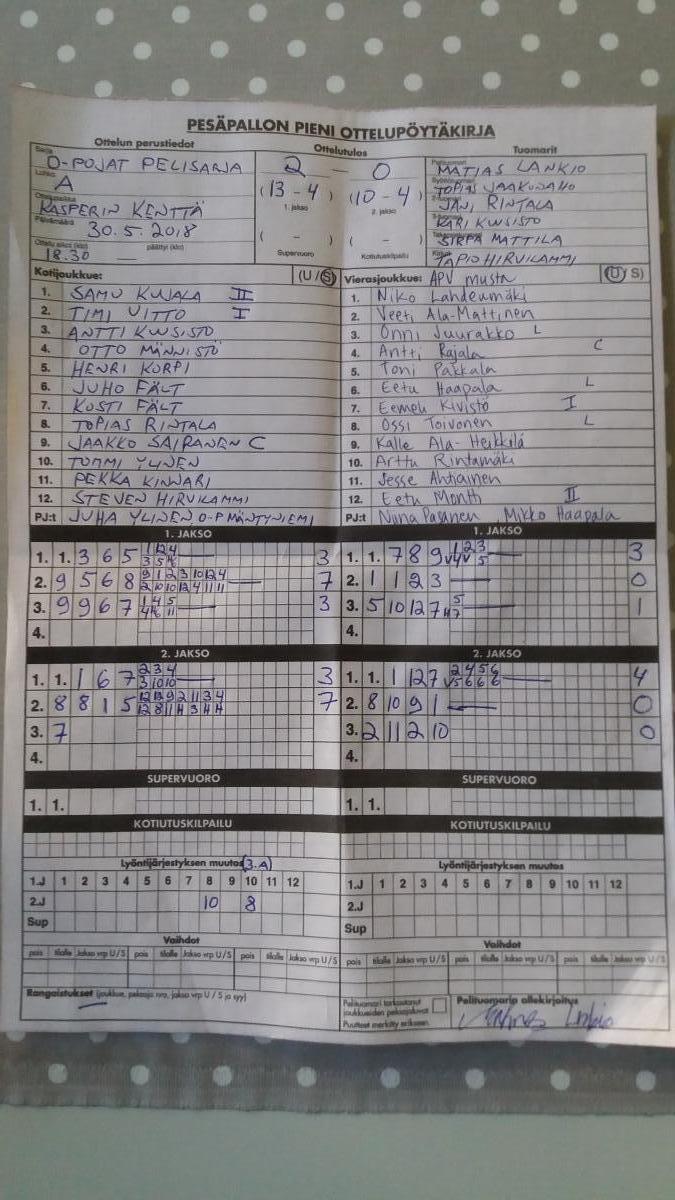 PESÄPALLON PIENI OTTELUPÖYTÄKIRJA
Ottelun perustiedot Ottelutulos Tuomarit
Sarja D-POJAT PELISARJA 2 — 0 MATIAS LANKIO
Lohko A (13 - 4) (10 - 4) TOPIAS JAAKONAHO
1. jakso 2. jakso JANI RINTALA
KASPERIN KENTTÄ KARI KUUSISTO
Päivämäärä 30.5.2018 ( - ) ( - ) SIRPA MATTILA
Ottelu alkoi (klo) 18.30 päättyi (klo) Supervuoro Kotiutuskilpailu TAPIO HIRVILAMMI
Kotijoukkue: (U / S) Vierasjoukkue: APV musta (U / S)
1. SAMU KUJALA II 1. Niko Lahdenmäki
2. TIMI VITTO I 2. Veeti Ala-Mattinen
3. ANTTI KUUSISTO 3. Onni Juurakko L
4. OTTO MÄNNISTÖ 4. Antti Rajala C
5. HENRI KORPI 5. Toni Pakkala
6. JUHO FÄLT 6. Eetu Haapala L
7. KUSTI FÄLT 7. Eemeli Kivistö I
8. TOPIAS RINTALA 8. Ossi Toivonen L
9. JAAKKO SAIRANEN C 9. Kalle Ala-Heikkilä
10. TOMMI YLINEN 10. Arttu Rintamäki
11. PEKKA KINNARI 11. Jesse Ahtiainen
12. STEVEN HIRVILAMMI 12. Eetu Month II
PJ:t JUHA YLINEN, O-P MÄNTYNIEMI PJ:t Niina Pasanen Mikko Haapala
1. JAKSO 1. JAKSO
1. 1. 3 6 5 3 1. 1. 7 8 9 3
2. 9 5 6 8 7 2. 1 1 2 3 0
3. 9 9 6 7 3 3. 5 10 12 7 1
4. 4.
2. JAKSO 2. JAKSO
1. 1. 1 6 7 3 1. 1. 1 12 7 4
2. 8 8 1 5 7 2. 8 10 9 1 0
3. 7 3. 2 11 2 10 0
4. 4.
SUPERVUORO SUPERVUORO
1. 1. 1. 1.
KOTIUTUSKILPAILU KOTIUTUSKILPAILU
Lyöntijärjestyksen muutos (3.A) Lyöntijärjestyksen muutos
1.J 1 2 3 4 5 6 7 8 9 10 11 12 1.J 1 2 3 4 5 6 7 8 9 10 11 12
2.J 10 8 2.J
Sup Sup
Vaihdot Vaihdot
pois tilalle Jakso vrp U/S pois tilalle Jakso vrp U/S pois tilalle Jakso vrp U/S pois tilalle Jakso vrp U/S pois tilalle Jakso vrp U/S pois tilalle Jakso vrp U/S
Rangaistukset (joukkue, pelaaja nro, jakso vrp U / S ja syy) Pelituomari tarkastanut joukkueiden pelaajaluvat Pelituomarin allekirjoitus
Puutteet merkitty erikseen.